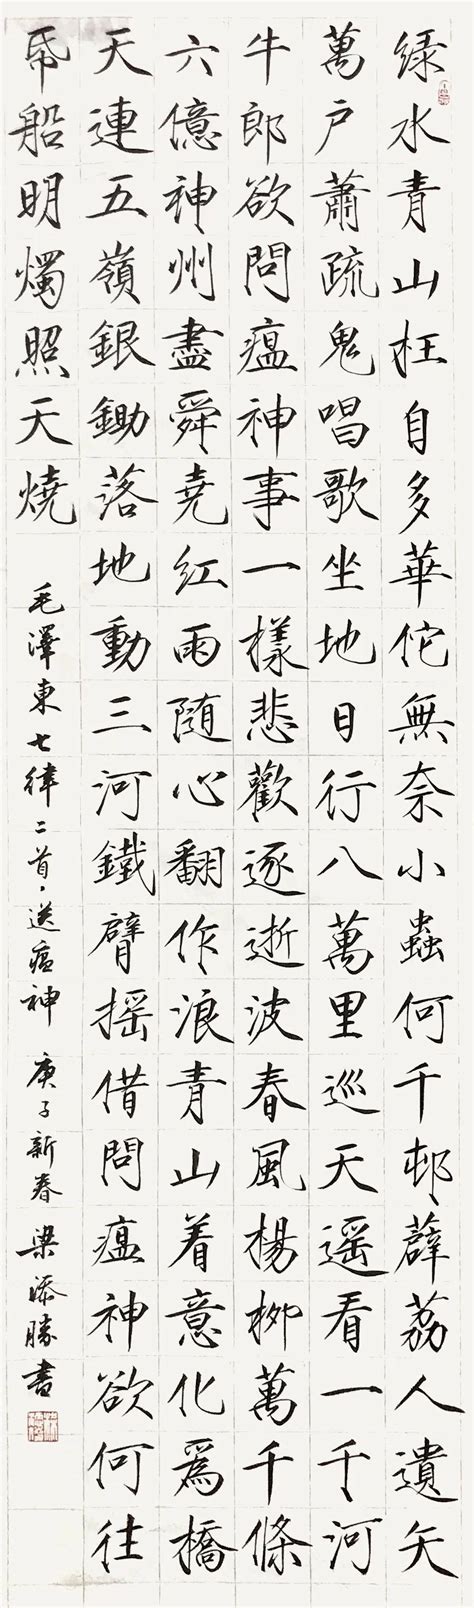 绿水青山枉自多華佗無奈小蟲何千邨薜荔人遺矢
萬户蕭疏鬼唱歌坐地日行八萬里巡天遥看一千河
牛郎欲問瘟神事一樣悲歡逐逝波春風楊柳萬千條
六億神州盡舜堯紅雨随心翻作浪青山着意化爲橋
天連五嶺銀鋤落地動三河鐵臂摇借問瘟神欲何往
帋船明燭照天燒
毛澤東七律二首·送瘟神 庚子新春 梁添勝書